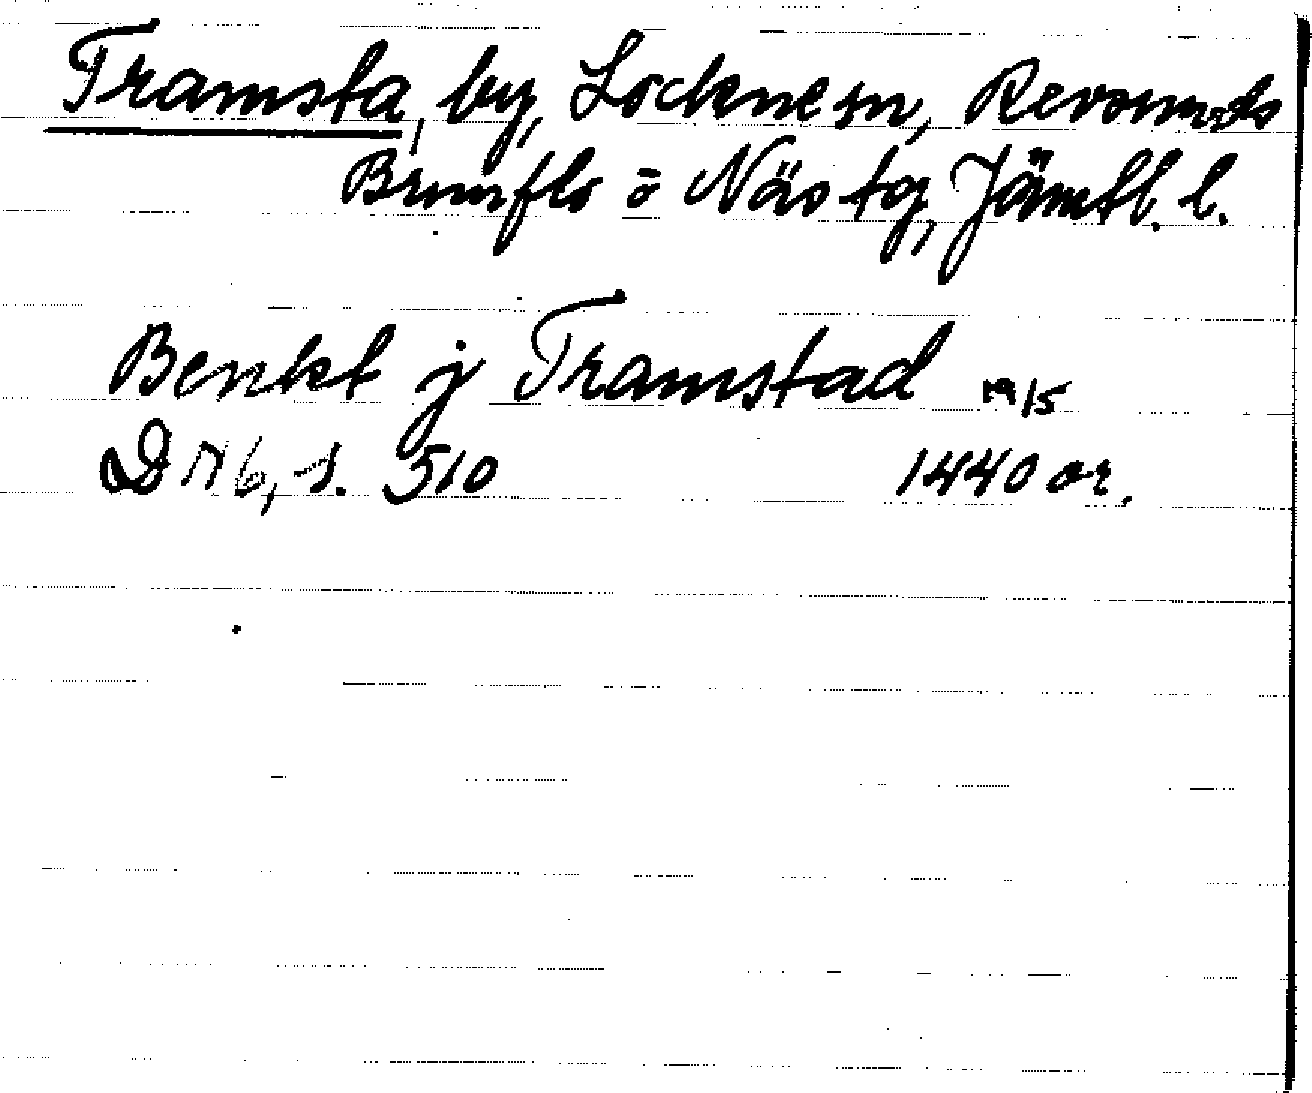 Tramsta, by, Lockne sn, Revsunds
Brunflo o Näs tg, Jämtl. l.
Benkt j Tramstad 19/5
DN 6, s. 510 1440 or.